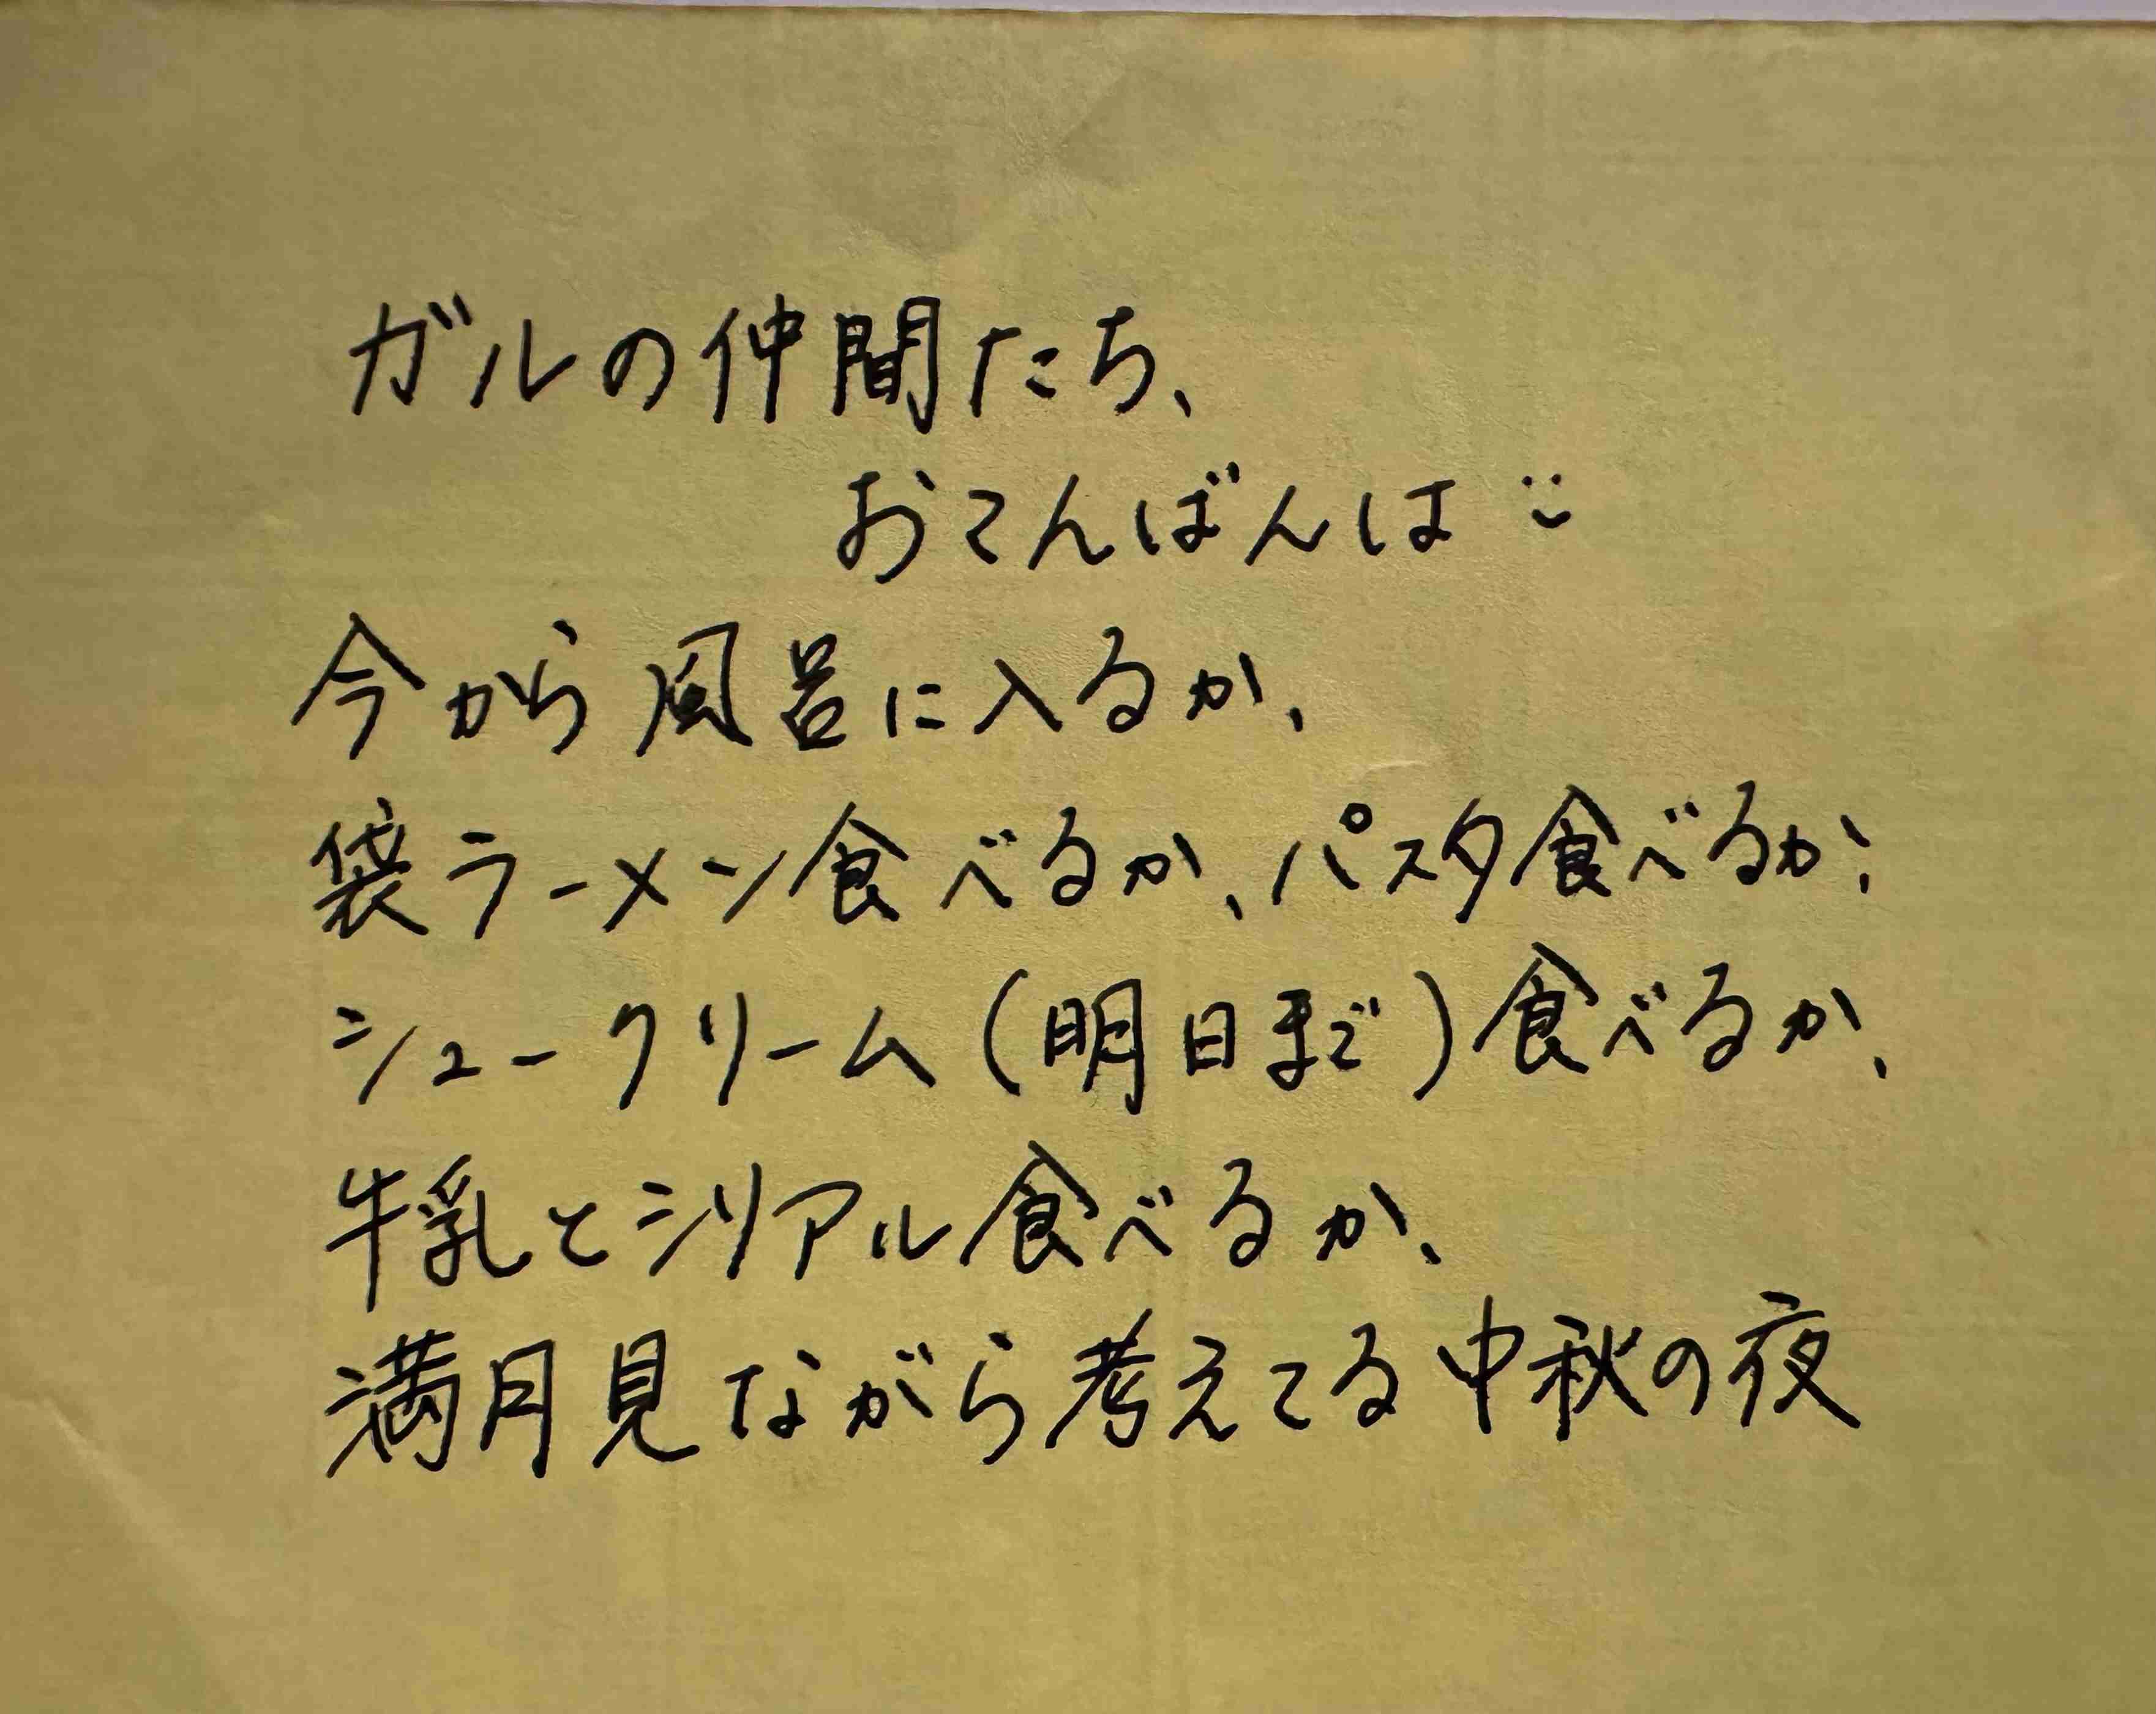 ガルの仲間たち、
おてんばんは
今から風呂に入るか、
袋ラーメン食べるか、パスタ食べるか、
シュークリーム(明日まで)食べるか、
牛乳とシリアル食べるか、
満月見ながら考えてる中秋の夜